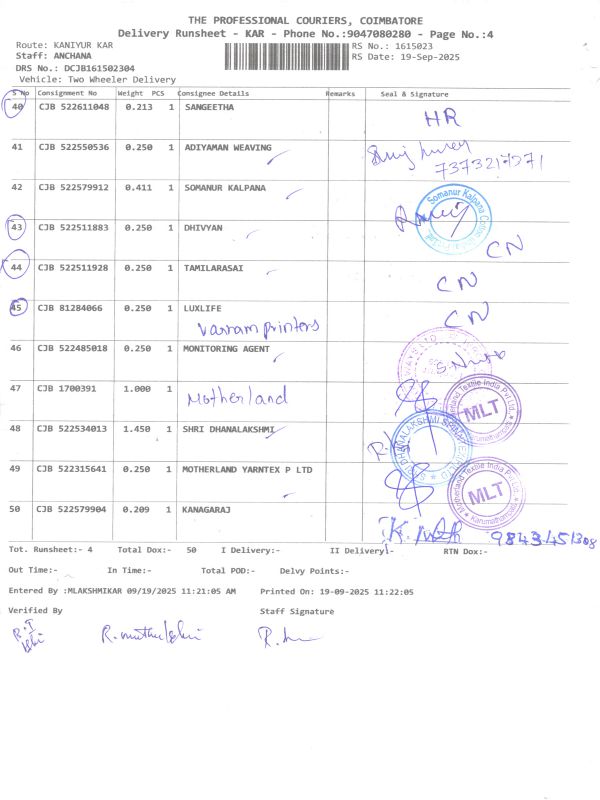 THE PROFESSIONAL COURIERS, COIMBATORE
Delivery Runsheet - KAR - Phone No.:9047080280 - Page No.:4
Route: KANIYUR KAR
RS No.: 1615023
Staff: ANCHANA
RS Date: 19-Sep-2025
DRS No.: DCJB161502304
Vehicle: Two Wheeler Delivery
S No Consignment No Weight PCS Consignee Details Remarks Seal & Signature
40 CJB 522611048 0.213 1 SANGEETHA HR
41 CJB 522550536 0.250 1 ADIYAMAN WEAVING
7373217271
42 CJB 522579912 0.411 1 SOMANUR KALPANA
Somanur Kalpana Cotton
43 CJB 522511883 0.250 1 DHIVYAN CN
44 CJB 522511928 0.250 1 TAMILARASAI CN
45 CJB 81284066 0.250 1 LUXLIFE CN
Varram printers
46 CJB 522485018 0.250 1 MONITORING AGENT
47 CJB 1700391 1.000 1
Motherland
Motherland Textile India Pvt Ltd.
MLT
Karumathampatti
48 CJB 522534013 1.450 1 SHRI DHANALAKSHMI
DHANALAKSHMI
49 CJB 522315641 0.250 1 MOTHERLAND YARNTEX P LTD
Motherland Textile India Pvt Ltd.
MLT
Karumathampatti
50 CJB 522579904 0.209 1 KANAGARAJ
Tot. Runsheet:- 4 Total Dox:- 50 I Delivery:- II Delivery:- RTN Dox:-
Out Time:- In Time:- Total POD:- Delvy Points:-
Entered By :MLAKSHMIKAR 09/19/2025 11:21:05 AM Printed On: 19-09-2025 11:22:05
Verified By Staff Signature